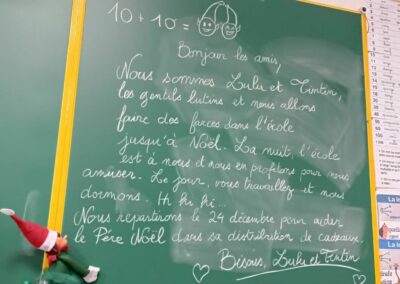 10 + 10 =
Bonjour les amis,
Nous sommes Lulu et Tintin,
les gentils lutins et nous allons
faire des farces dans l'école
jusqu'à Noël. La nuit, l'école
est à nous et nous en profitons pour nous
amuser. Le jour, vous travaillez et nous
dormons. Hi hi hi...
Nous repartirons le 24 décembre pour aider
le Père Noël dans sa distribution de cadeaux.
Bisous, Lulu et Tintin